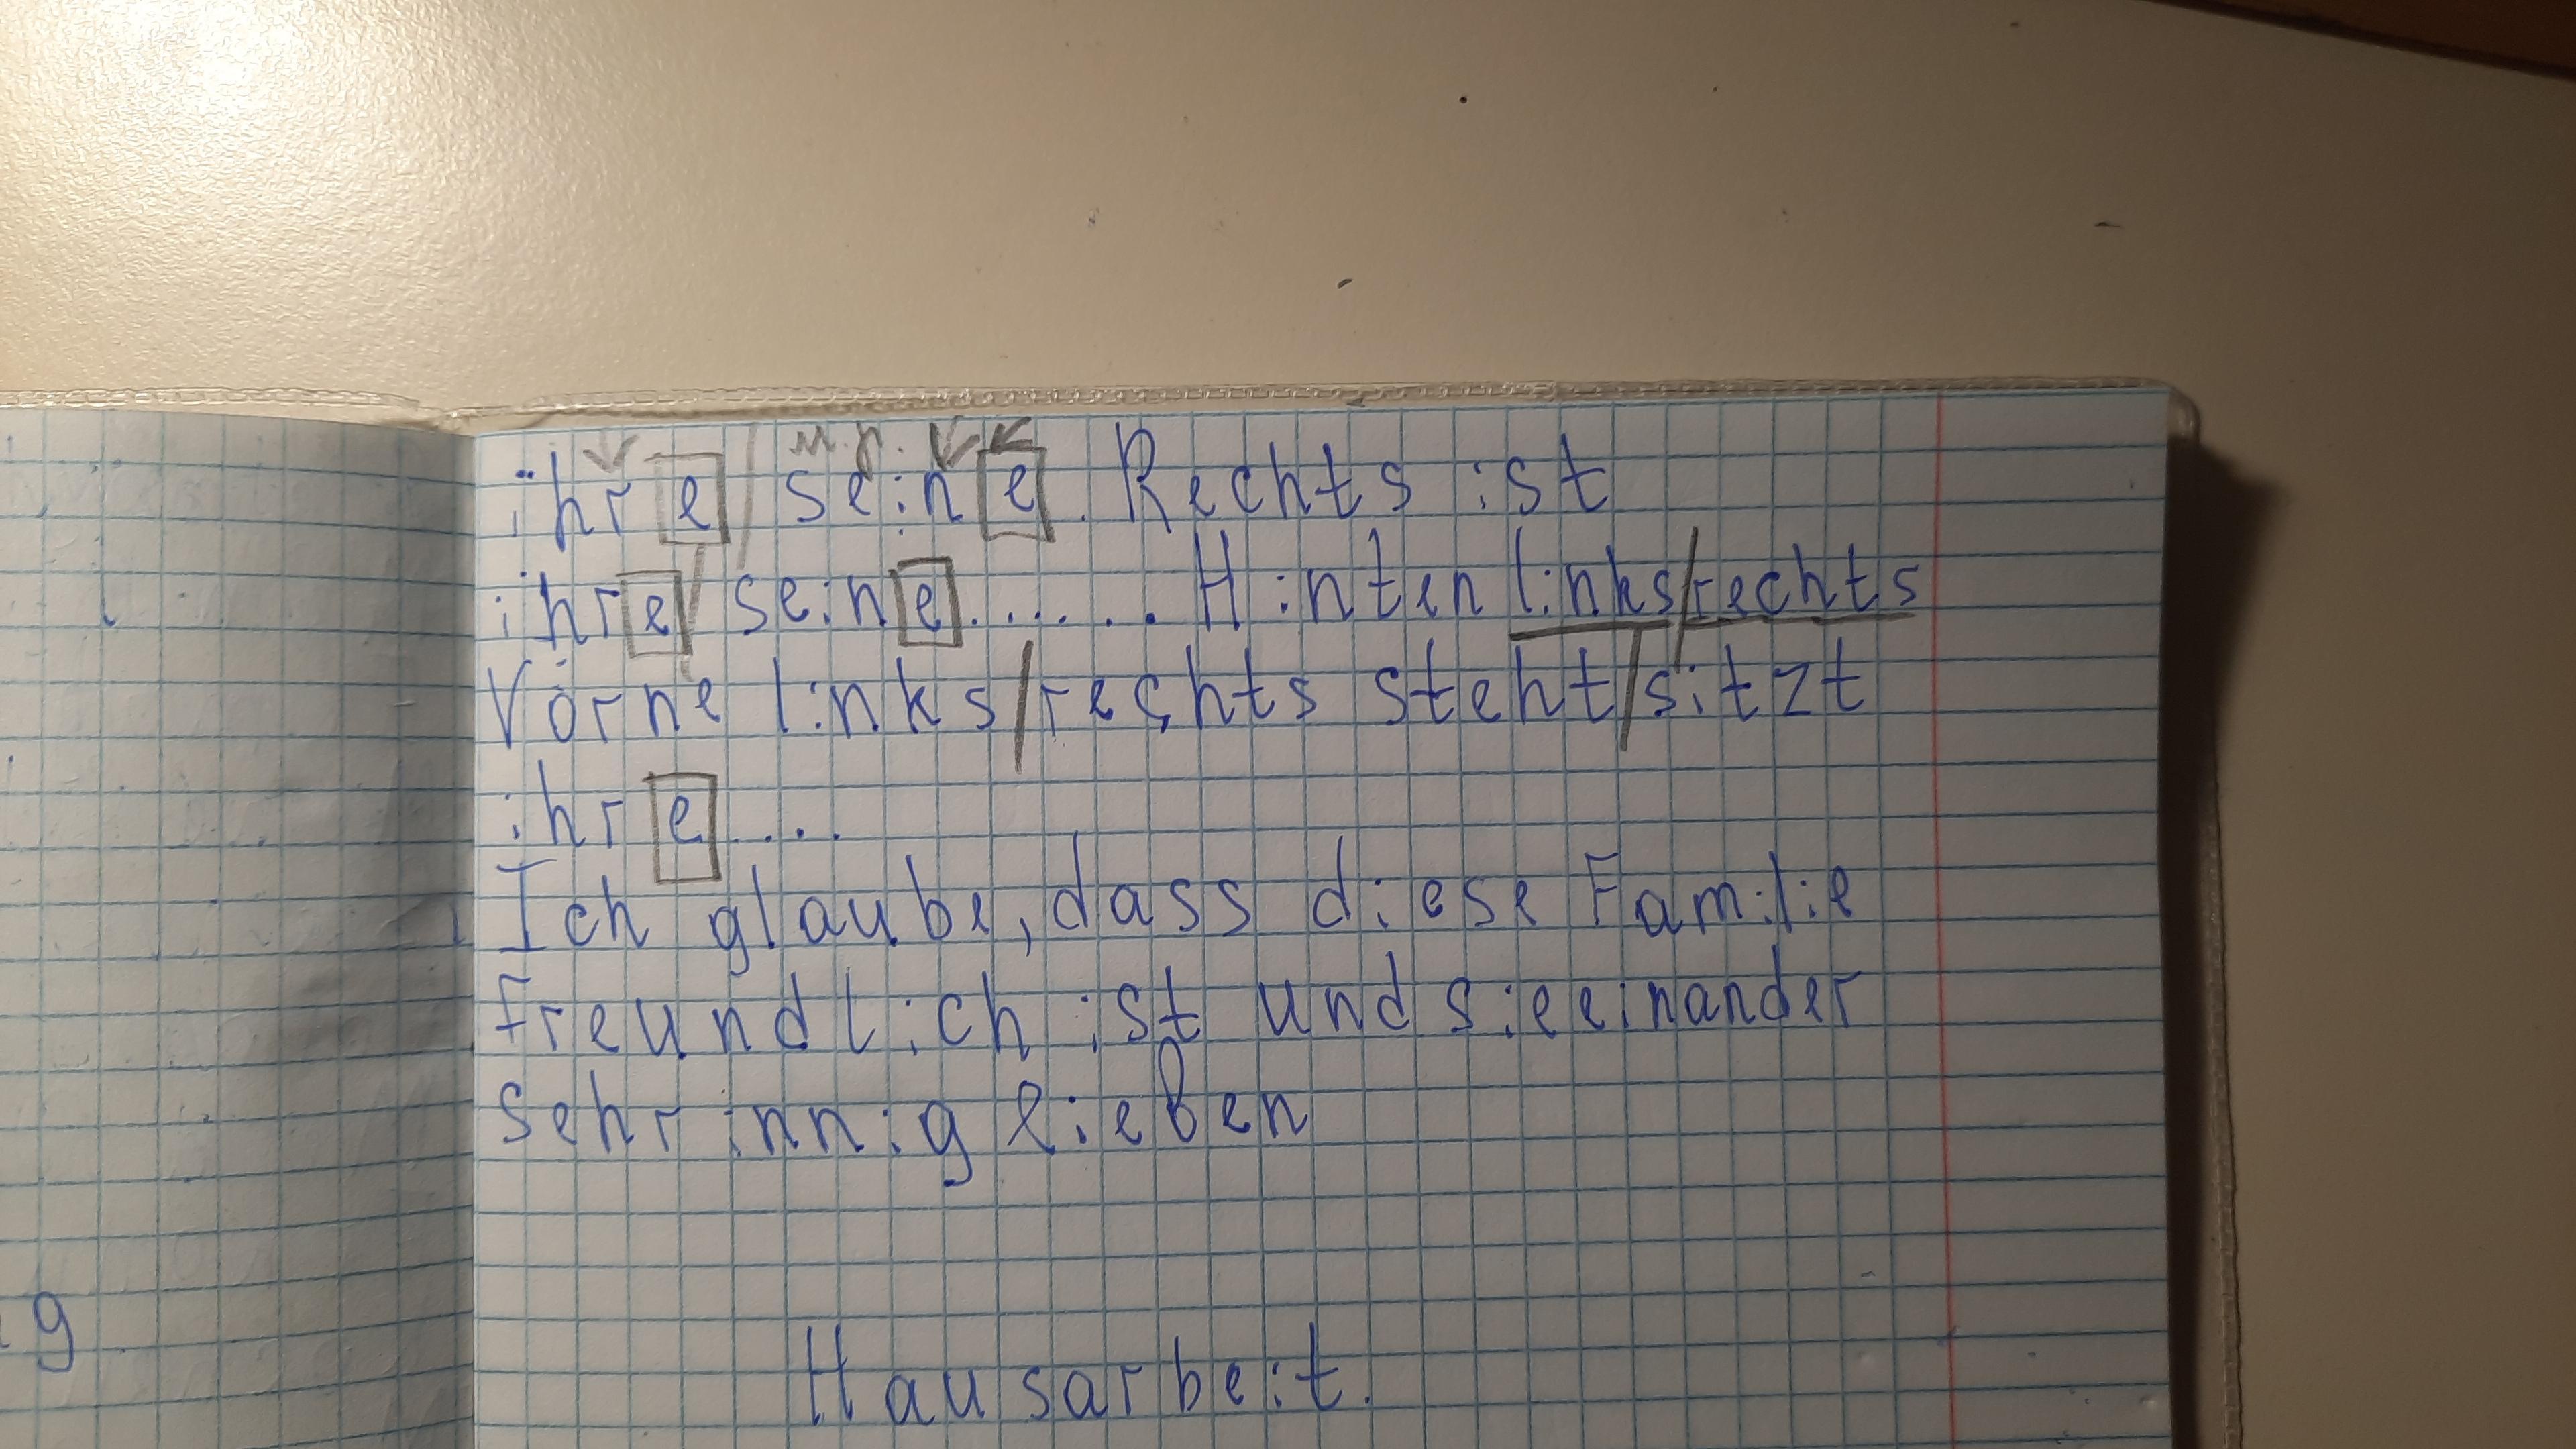 м.р.
ihre / seine. Rechts ist
ihre / seine...... Hinten links/rechts
Vorne links/rechts steht/sitzt
ihre....
Ich glaube, dass diese Familie
freundlich ist und sie einander
sehr innig lieben
g
Hausarbeit.